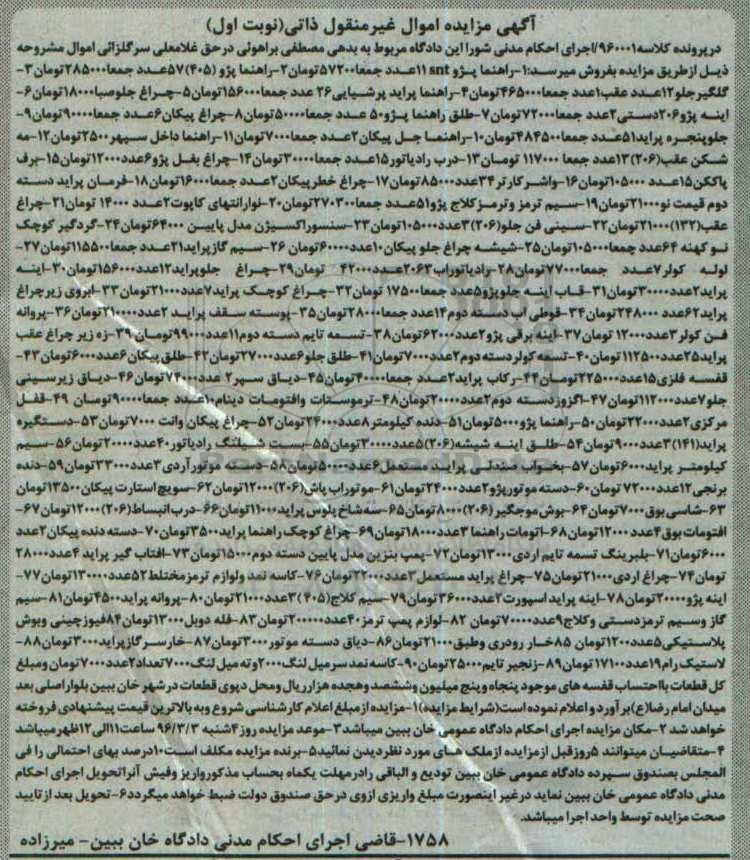 آگهی مزایده اموال غیرمنقول ذاتی(نوبت اول)
درپرونده کلاسه۹۶۰۰۰۱/اجرای احکام مدنی شورا این دادگاه مربوط به بدهی مصطفی براهوئی درحق غلامعلی سرگلزائی اموال مشروحه
ذیل ازطریق مزایده بفروش میرسد:۱-راهنما پژو snt ۱۱عدد جمعا۵۷۲۰۰تومان۲-راهنما پژو (۴۰۵)۵۷عدد جمعا۲۸۵۰۰۰تومان۳-
گلگیرجلو۱۲عدد عقب۱عدد جمعا۴۶۵۰۰۰تومان۴-راهنما پراید پرشیایی۲۶ عدد جمعا۱۵۶۰۰۰تومان۵-چراغ جلوصبا۱۸۰۰۰تومان۶-
اینه پژو۲۰۶دستی۲عدد جمعا۷۲۰۰۰تومان۷-طلق راهنما پژو۵۰ عدد جمعا۵۰۰۰۰تومان۸-چراغ پیکان۶عدد جمعا۹۰۰۰۰تومان۹-
جلوپنجره پراید۵۱عدد جمعا۴۸۴۵۰۰تومان۱۰-راهنما جل پیکان۲عدد جمعا۷۰۰۰تومان۱۱-راهنما داخل سپهر۲۵۰۰تومان۱۲-مه
شکن عقب(۲۰۶)۱۳عدد جمعا ۱۱۷۰۰۰ تومان۱۳-درب رادیاتور۱۵عدد جمعا۳۰۰۰۰تومان۱۴-چراغ بغل پژو۶عدد۱۲۰۰۰تومان۱۵-برف
پاککن۱۵عدد ۱۰۵۰۰۰تومان۱۶-واشرکارتر۳۴عدد۸۵۰۰۰تومان۱۷-چراغ خطرپیکان۲عدد جمعا۱۶۰۰۰تومان۱۸-فرمان پراید دسته
دوم قیمت نو۲۱۰۰۰تومان۱۹-سیم ترمز وترمزکلاج پژو۵۱عدد جمعا۲۷۰۳۰۰تومان۲۰-نوارانتهای کاپوت۲عدد ۱۴۰۰۰ تومان۲۱-چراغ
عقب(۱۳۲)۲۱۰۰۰تومان۲۲-سینی فن جلو(۲۰۶)۳عدد۱۰۵۰۰۰تومان۲۳-سنسوراکسیژن مدل پایین ۶۴۰۰۰تومان۲۴-گردگیر کوچک
نو کهنه ۶۴عدد جمعا۱۰۵۰۰۰تومان۲۵-شیشه چراغ جلو پیکان۱۰عدد۶۰۰۰۰تومان ۲۶-سیم گازپراید۲۱عدد جمعا۱۱۵۵۰۰تومان۲۷-
لوله کولر۷عدد جمعا۷۷۰۰۰تومان۲۸-رادیاتوراب۲۰۶۳عدد۴۲۰۰۰ تومان۲۹-چراغ جلوپراید۱۲عدد۱۵۶۰۰۰تومان۳۰-اینه
پراید۲عدد۳۰۰۰۰تومان۳۱-قاب اینه جلوپژو۵عدد جمعا۱۷۵۰۰ تومان۳۲-چراغ کوچک پراید۷عدد۲۱۰۰۰تومان۳۳-ابروی زیرچراغ
پراید۶۲عدد ۲۴۸۰۰۰تومان۳۴-قوطی اب دسته دوم۱۴عدد جمعا۲۸۰۰۰تومان۳۵-پوسته سقف پراید ۲عدد۲۱۰۰۰تومان۳۶-پروانه
فن کولر۳عدد۱۲۰۰۰ تومان۳۷-اینه برقی پژو۲عدد۶۲۰۰۰تومان۳۸-تسمه تایم دسته دوم۱۱عدد۹۹۰۰۰تومان۳۹-زه زیر چراغ عقب
پراید۲۵عدد۱۱۲۵۰۰تومان۴۰-تسمه کولردسته دوم۲عدد۷۰۰۰تومان۴۱-طلق جلو۶عدد۲۷۰۰۰تومان۴۲-طلق پیکان۶عدد۶۰۰۰تومان۴۳-
قفسه فلزی۱۵عدد۲۲۵۰۰۰تومان۴۴-رکاب پراید۲عدد جمعا۴۰۰۰۰تومان۴۵-دیاق سپر۲ عدد۷۴۰۰۰تومان۴۶-دیاق زیرسینی
جلو۷عدد۱۱۲۰۰۰تومان۴۷-اگزوزدسته دوم۲عدد۲۰۰۰۰تومان۴۸-ترموستات وافتومات دینام۱۰عدد جمعا۹۰۰۰۰تومان ۴۹-قفل
مرکزی۲عدد۲۲۰۰۰تومان۵۰-راهنما پژو۵۰۰۰تومان۵۱-دنده کیلومتر۸عدد۲۴۰۰۰تومان۵۲-چراغ پیکان وانت ۷۰۰۰تومان۵۳-دستگیره
پراید(۱۴۱)۳عدد۹۰۰۰تومان۵۴-طلق اینه شیشه(۲۰۶)۵عدد۲۰۰۰۰تومان۵۵-بست شیلنگ رادیاتور۴۰عدد۲۰۰۰۰تومان۵۶-سیم
کیلومتر پراید۶۰۰۰تومان۵۷-بخواب صندلی پراید مستعمل۶عدد۵۰۰۰۰تومان۵۸-دسته موتورآردی۳عدد۳۳۰۰۰تومان۵۹-دنده
برنجی۱۲عدد۷۲۰۰۰ تومان۶۰-دسته موتورپژو۲عدد۲۴۰۰۰تومان۶۱-موتوراب پاش(۲۰۶)۱۲۰۰۰تومان۶۲-سویچ استارت پیکان۱۳۵۰۰تومان
۶۳-شاسی بوق۷۰۰۰تومان۶۴-بوش موجگیر(۲۰۶)۸۰۰۰تومان۶۵-سه شاخ پلوس پراید۱۱۰۰۰تومان۶۶-درب انبساط(۲۰۶)۱۲۰۰۰تومان۶۷-
افتومات بوق۴عدد ۱۲۰۰۰تومان۶۸-اتومات راهنما ۳عدد۱۸۰۰۰تومان۶۹-چراغ کوچک راهنما پراید۳۵۰۰تومان۷۰-دسته دنده پیکان۲عدد
۶۰۰۰تومان۷۱-بلبرینگ تسمه تایم اردی۱۳۰۰۰تومان۷۲-پمپ بنزین مدل پایین دسته دوم۱۵۰۰۰تومان۷۳-افتاب گیر پراید ۴عدد۲۸۰۰۰
تومان۷۴-چراغ اردی۲۱۰۰۰تومان۷۵-چراغ پراید مستعمل۳عدد۲۲۰۰۰تومان۷۶-کاسه نمد ولوازم ترمزمختلط۵۲عدد۱۳۰۰۰۰تومان۷۷-
اینه پژو۲۰۰۰۰تومان۷۸-اینه پراید اسپورت۲عدد۳۶۰۰۰تومان۷۹-سیم کلاج(۴۰۵)۳عدد۲۱۰۰۰تومان۸۰-پروانه پراید۴۵۰۰تومان۸۱-سیم
گاز وسیم ترمزدستی وکلاج۹عدد۷۰۰۰۰تومان ۸۲-لوازم پمپ ترمز۴۰عدد۲۰۰۰۰۰تومان۸۳-فله دوبل۱۳۰۰۰تومان۸۴فیوزچینی وبوش
پلاستیکی۵عدد۱۲۰۰تومان ۸۵خار رودری وطبق۲۱۰۰۰تومان۸۶-دیاق دسته موتور۳۰۰۰تومان۸۷-خارسر گازپراید۳۰۰۰تومان۸۸-
لاستیک رام۱۹عدد۱۷۱۰۰تومان۸۹-زنجیر تایم۲۵۰۰۰تومان۹۰-کاسه نمد سرمیل لنگ۲۰۰۰وته میل لنگ۷۰۰۰تعداد۲عدد۷۰۰۰تومان ومبلغ
کل قطعات بااحتساب قفسه های موجود پنجاه وپنج میلیون وششصد وهجده هزارریال ومحل دپوی قطعات درشهرخان ببین بلواراصلی بعد
میدان امام رضا(ع)برآورد واعلام نموده است(شرایط مزایده)۱-مزایده ازمبلغ اعلام کارشناسی شروع وبه بالاترین قیمت پیشنهادی فروخته
خواهد شد ۲-مکان مزایده اجرای احکام دادگاه عمومی خان ببین میباشد۳-موعد مزایده روز۴شنبه ۹۶/۳/۳ ساعت۱۱الی۱۲ظهرمیباشد
۴-متقاضیان میتوانند ۵روزقبل ازمزایده ازملک های مورد نظردیدن نمائید۵-برنده مزایده مکلف است۱۰درصد بهای احتمالی را فی
المجلس بصندوق سپرده دادگاه عمومی خان ببین تودیع و الباقی رادرمهلت یکماه بحساب مذکورواریز وفیش آنراتحویل اجرای احکام
مدنی دادگاه عمومی خان ببین نماید درغیر اینصورت مبلغ واریزی ازوی درحق صندوق دولت ضبط خواهد میگردد۶-تحویل بعد ازتایید
صحت مزایده توسط واحد اجرا میباشد.
۱۷۵۸-قاضی اجرای احکام مدنی دادگاه خان ببین- میرزاده